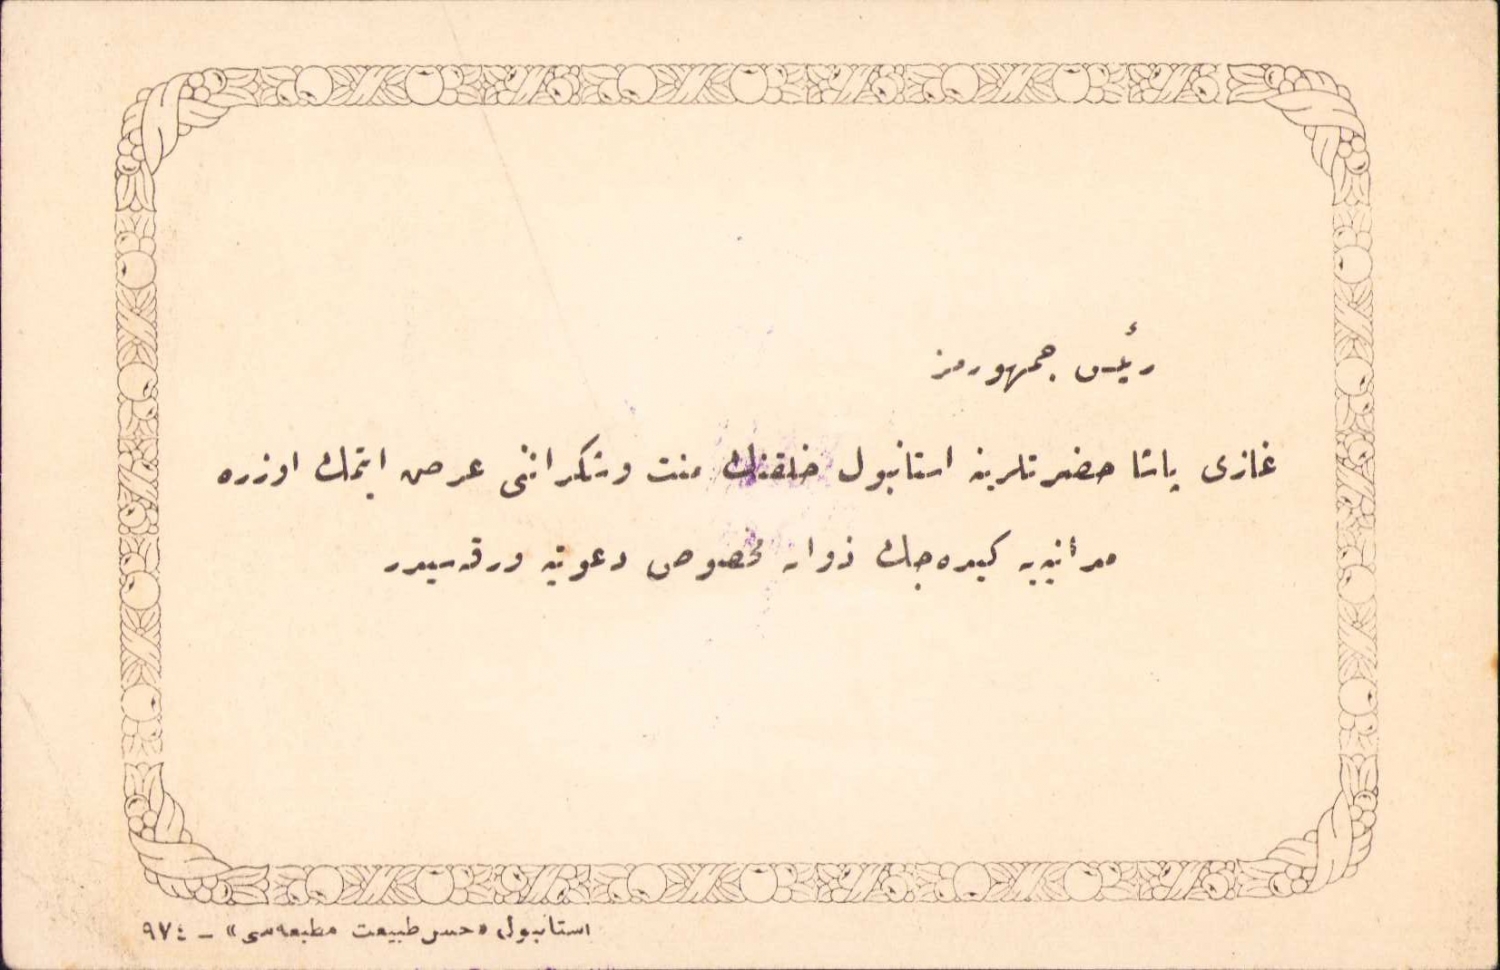 رئیس جمهورمز
غازی پاشا حضرتلرینه استانبول خلقنك منت وشكراننی عرض ایتمك اوزره
مدانیه‌یه كیده‌جك ذواته مخصوص دعوتیه ورقه‌سیدر
استانبول «حسن طبیعت مطبعه‌سی» – ٩٧٤